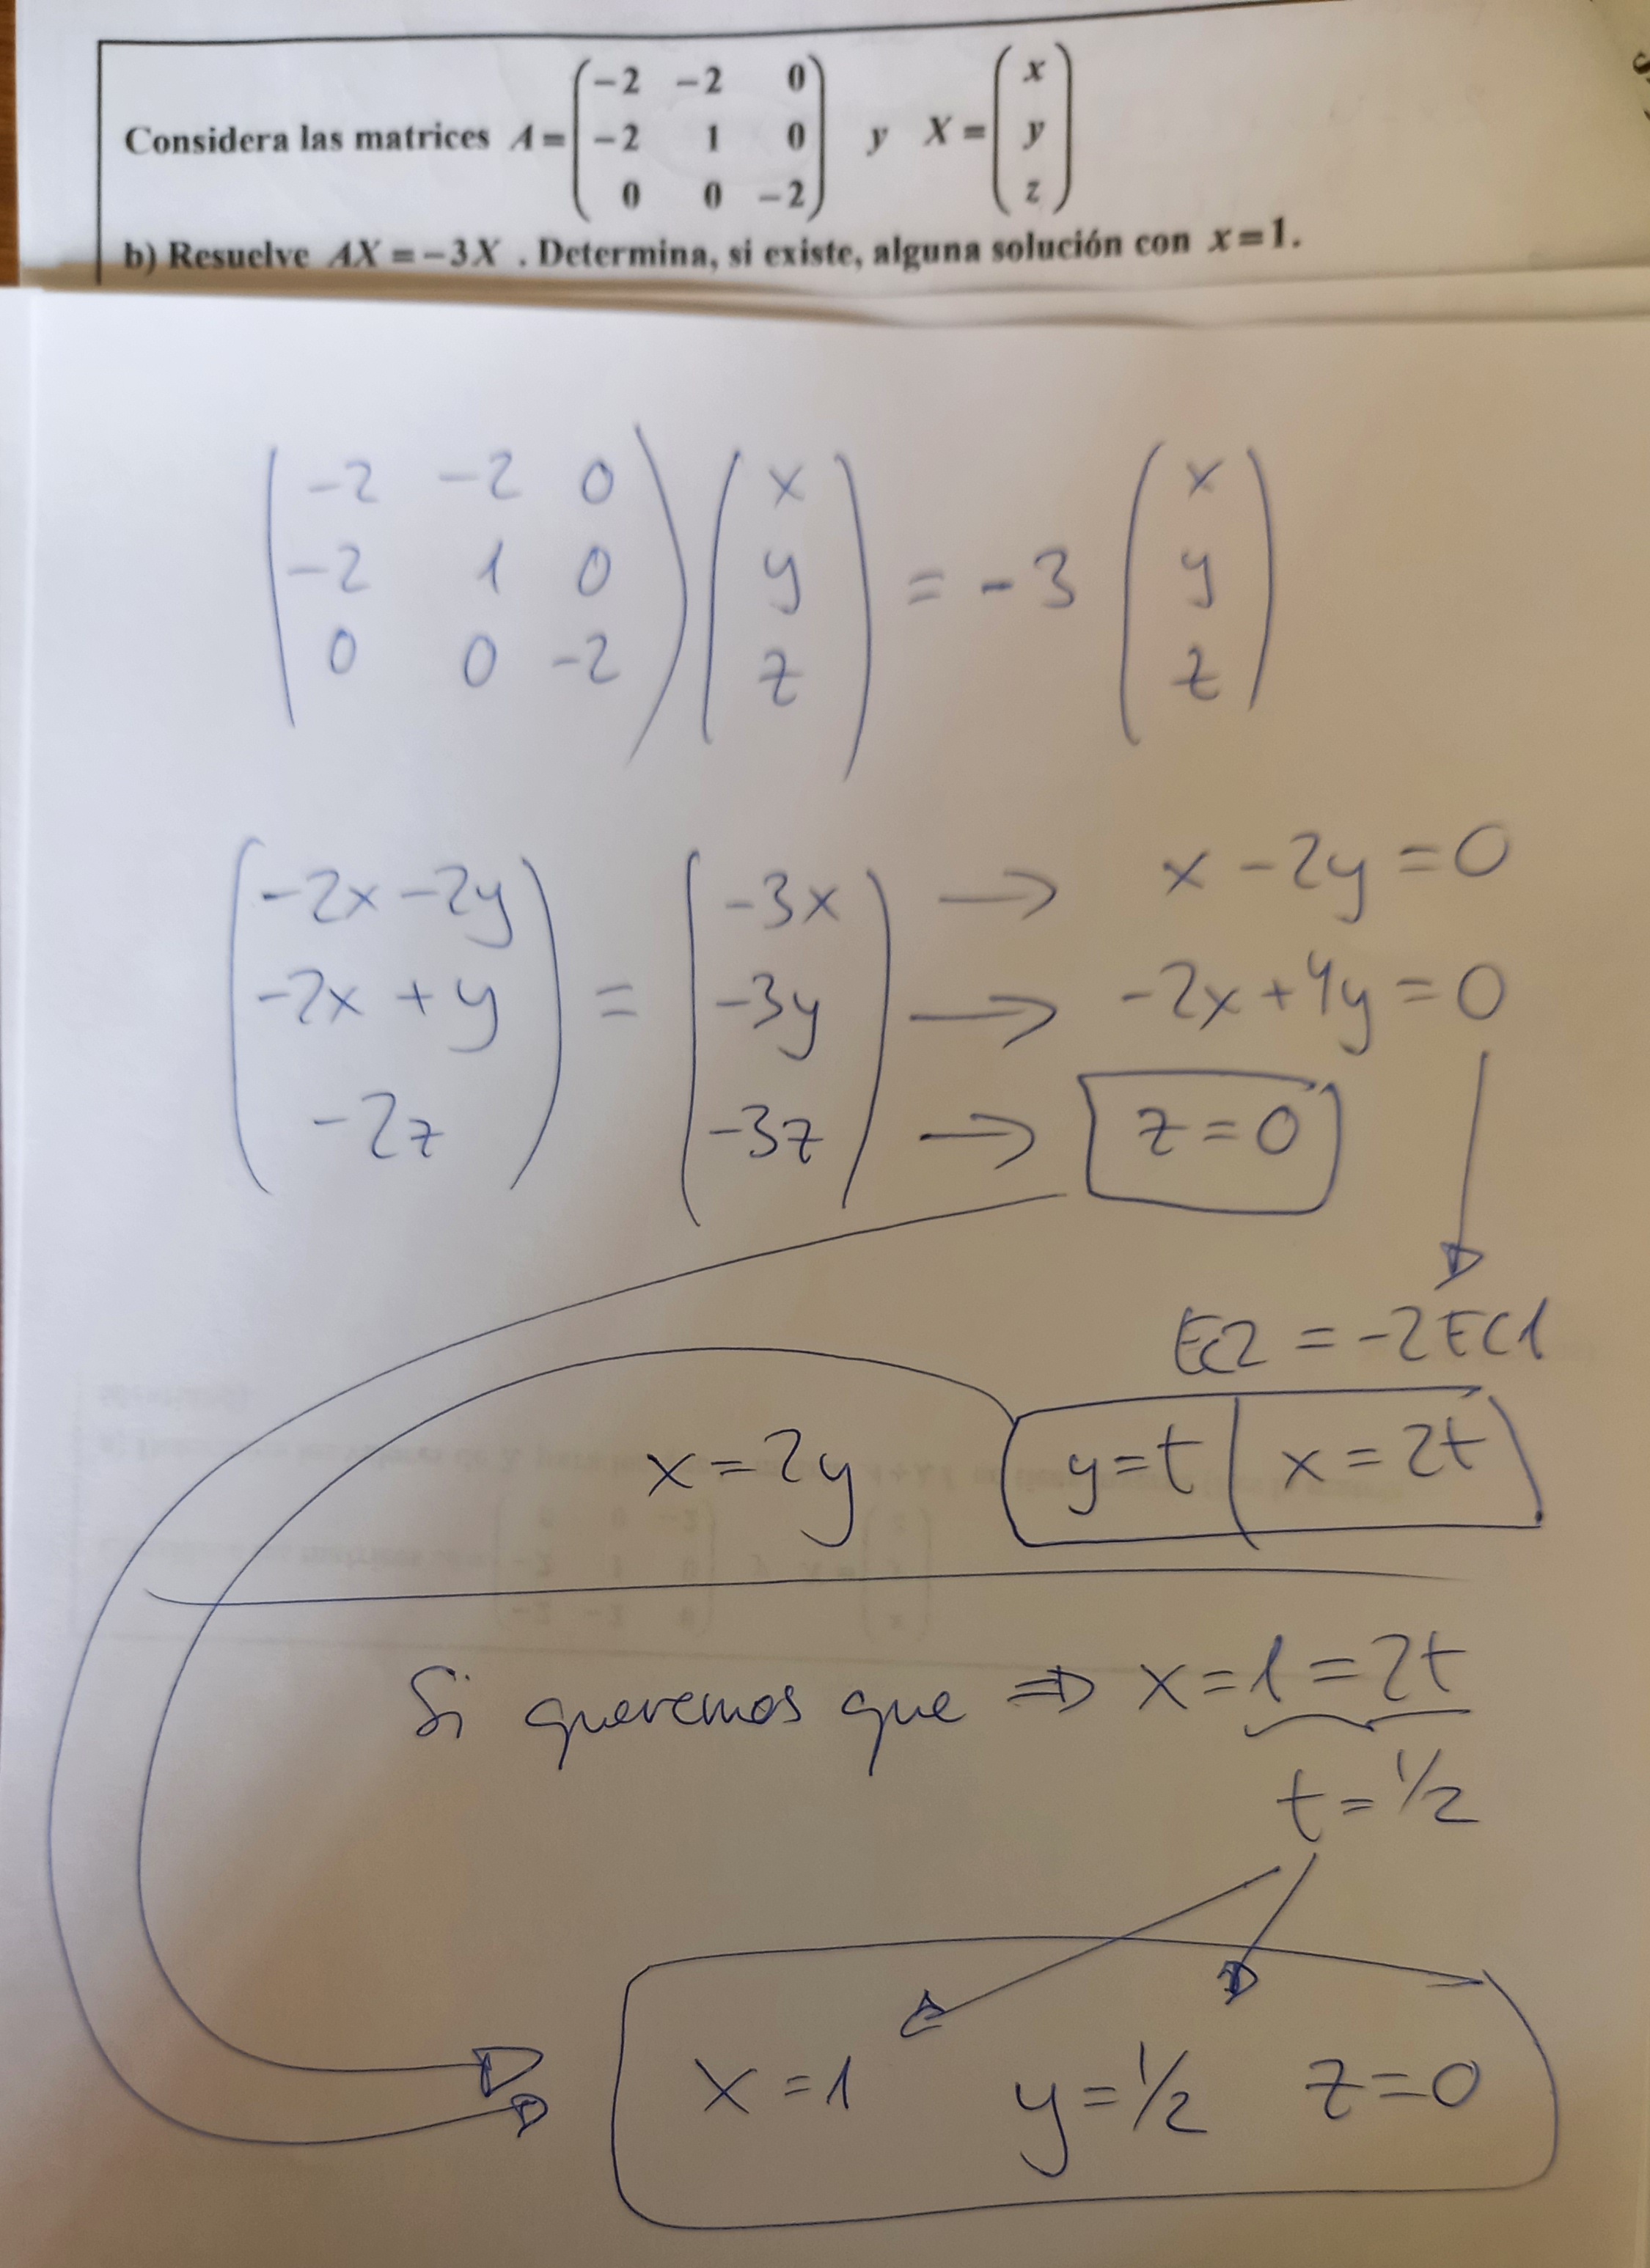 Considera las matrices A = (−2 −2 0; −2 1 0; 0 0 −2) y X = (x; y; z)
b) Resuelve AX = −3X . Determina, si existe, alguna solución con x=1.
(-2 -2 0; -2 1 0; 0 0 -2) (x; y; z) = -3 (x; y; z)
-2x -2y = -3x → x -2y = 0
-2x + y = -3y → -2x + 4y = 0
-2z = -3z → z = 0
EC2 = -2EC1
x = 2y y = t | x = 2t
Si queremos que ⇒ x = 1 = 2t
t = 1/2
x = 1 y = 1/2 z = 0